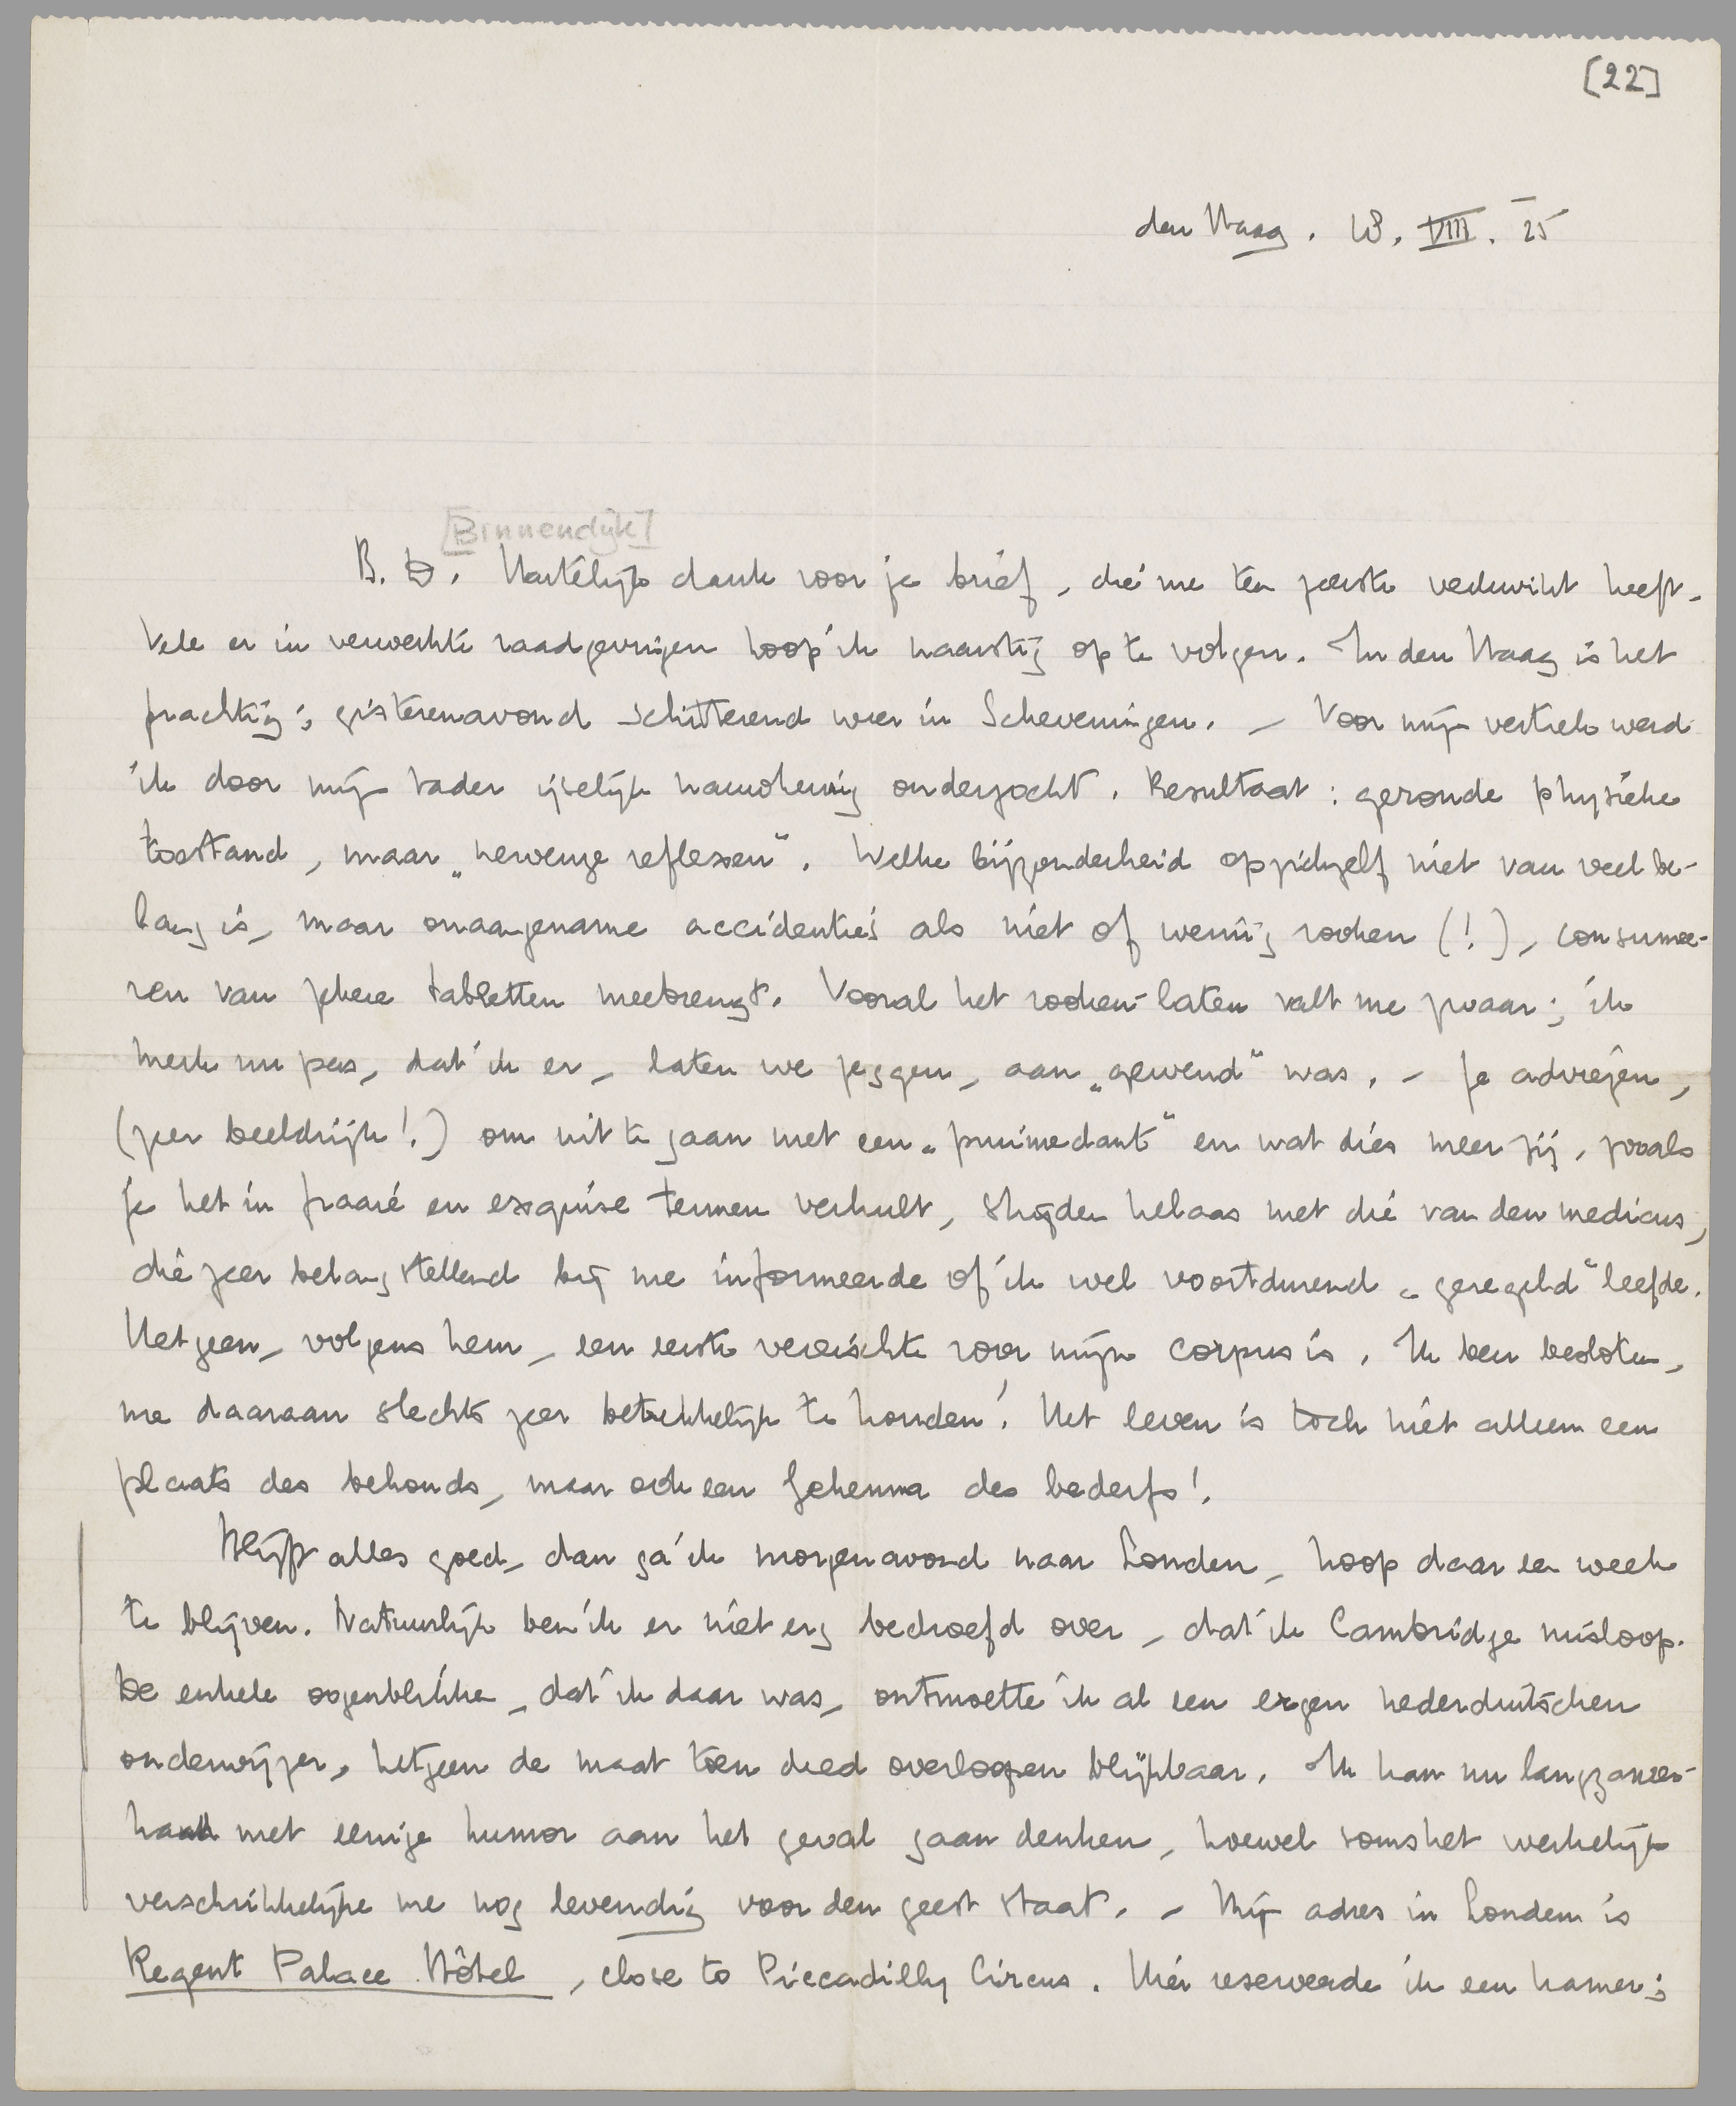 [22]
den Haag. 18. VIII. 25
[Binnendijk]
B. D. Hartelijk dank voor je brief, die me ten zeerste verkwikt heeft.
Vele er in verwerkte raadgevingen hoop ik naarstig op te volgen. In den Haag is het
prachtig; gisterenavond schitterend weer in Scheveningen. – Voor mijn vertrek werd
ik door mijn vader ijselijk nauwkeurig onderzocht. Resultaat: gezonde physieke
toestand, maar „nerveuze reflexen“. Welke bijzonderheid op zichzelf niet van veel be-
lang is, maar onaangename accidenties als niet of weinig rooken (!), consumee-
ren van zekere tabletten meebrengt. Vooral het rooken-laten valt me zwaar; ik
merk nu pas, dat ik er, laten we zeggen, aan „gewend“ was. – Je adviezen,
(zeer beeldrijk!) om uit te gaan met een „pruimedant“ en wat dies meer zij, zooals
je het in fraaie en exquise termen verhult, strijden helaas met die van den medicus,
die zeer belangstellend bij me informeerde of ik wel voortdurend „geregeld“ leefde.
Hetgeen, volgens hem, een eerste vereischte voor mijn corpus is. Ik ben besloten,
me daaraan slechts zeer betrekkelijk te houden! Het leven is toch niet alleen een
plaats des behouds, maar ook een Gehenna des bederfs!
Blijft alles goed, dan ga ik morgenavond naar Londen, hoop daar een week
te blijven. Natuurlijk ben ik er niet erg bedroefd over, dat ik Cambridge misloop.
De enkele oogenblikken, dat ik daar was, ontmoette ik al een ergen nederduitschen
onderwijzer, hetgeen de maat toen deed overloopen blijkbaar. Ik kan nu langzamer-
hand met eenige humor aan het geval gaan denken, hoewel soms het werkelijk
verschrikkelijke me nog levendig voor den geest staat. – Mijn adres in Londen is
Regent Palace Hôtel, close to Piccadilly Circus. Hier reserveerde ik een kamer;